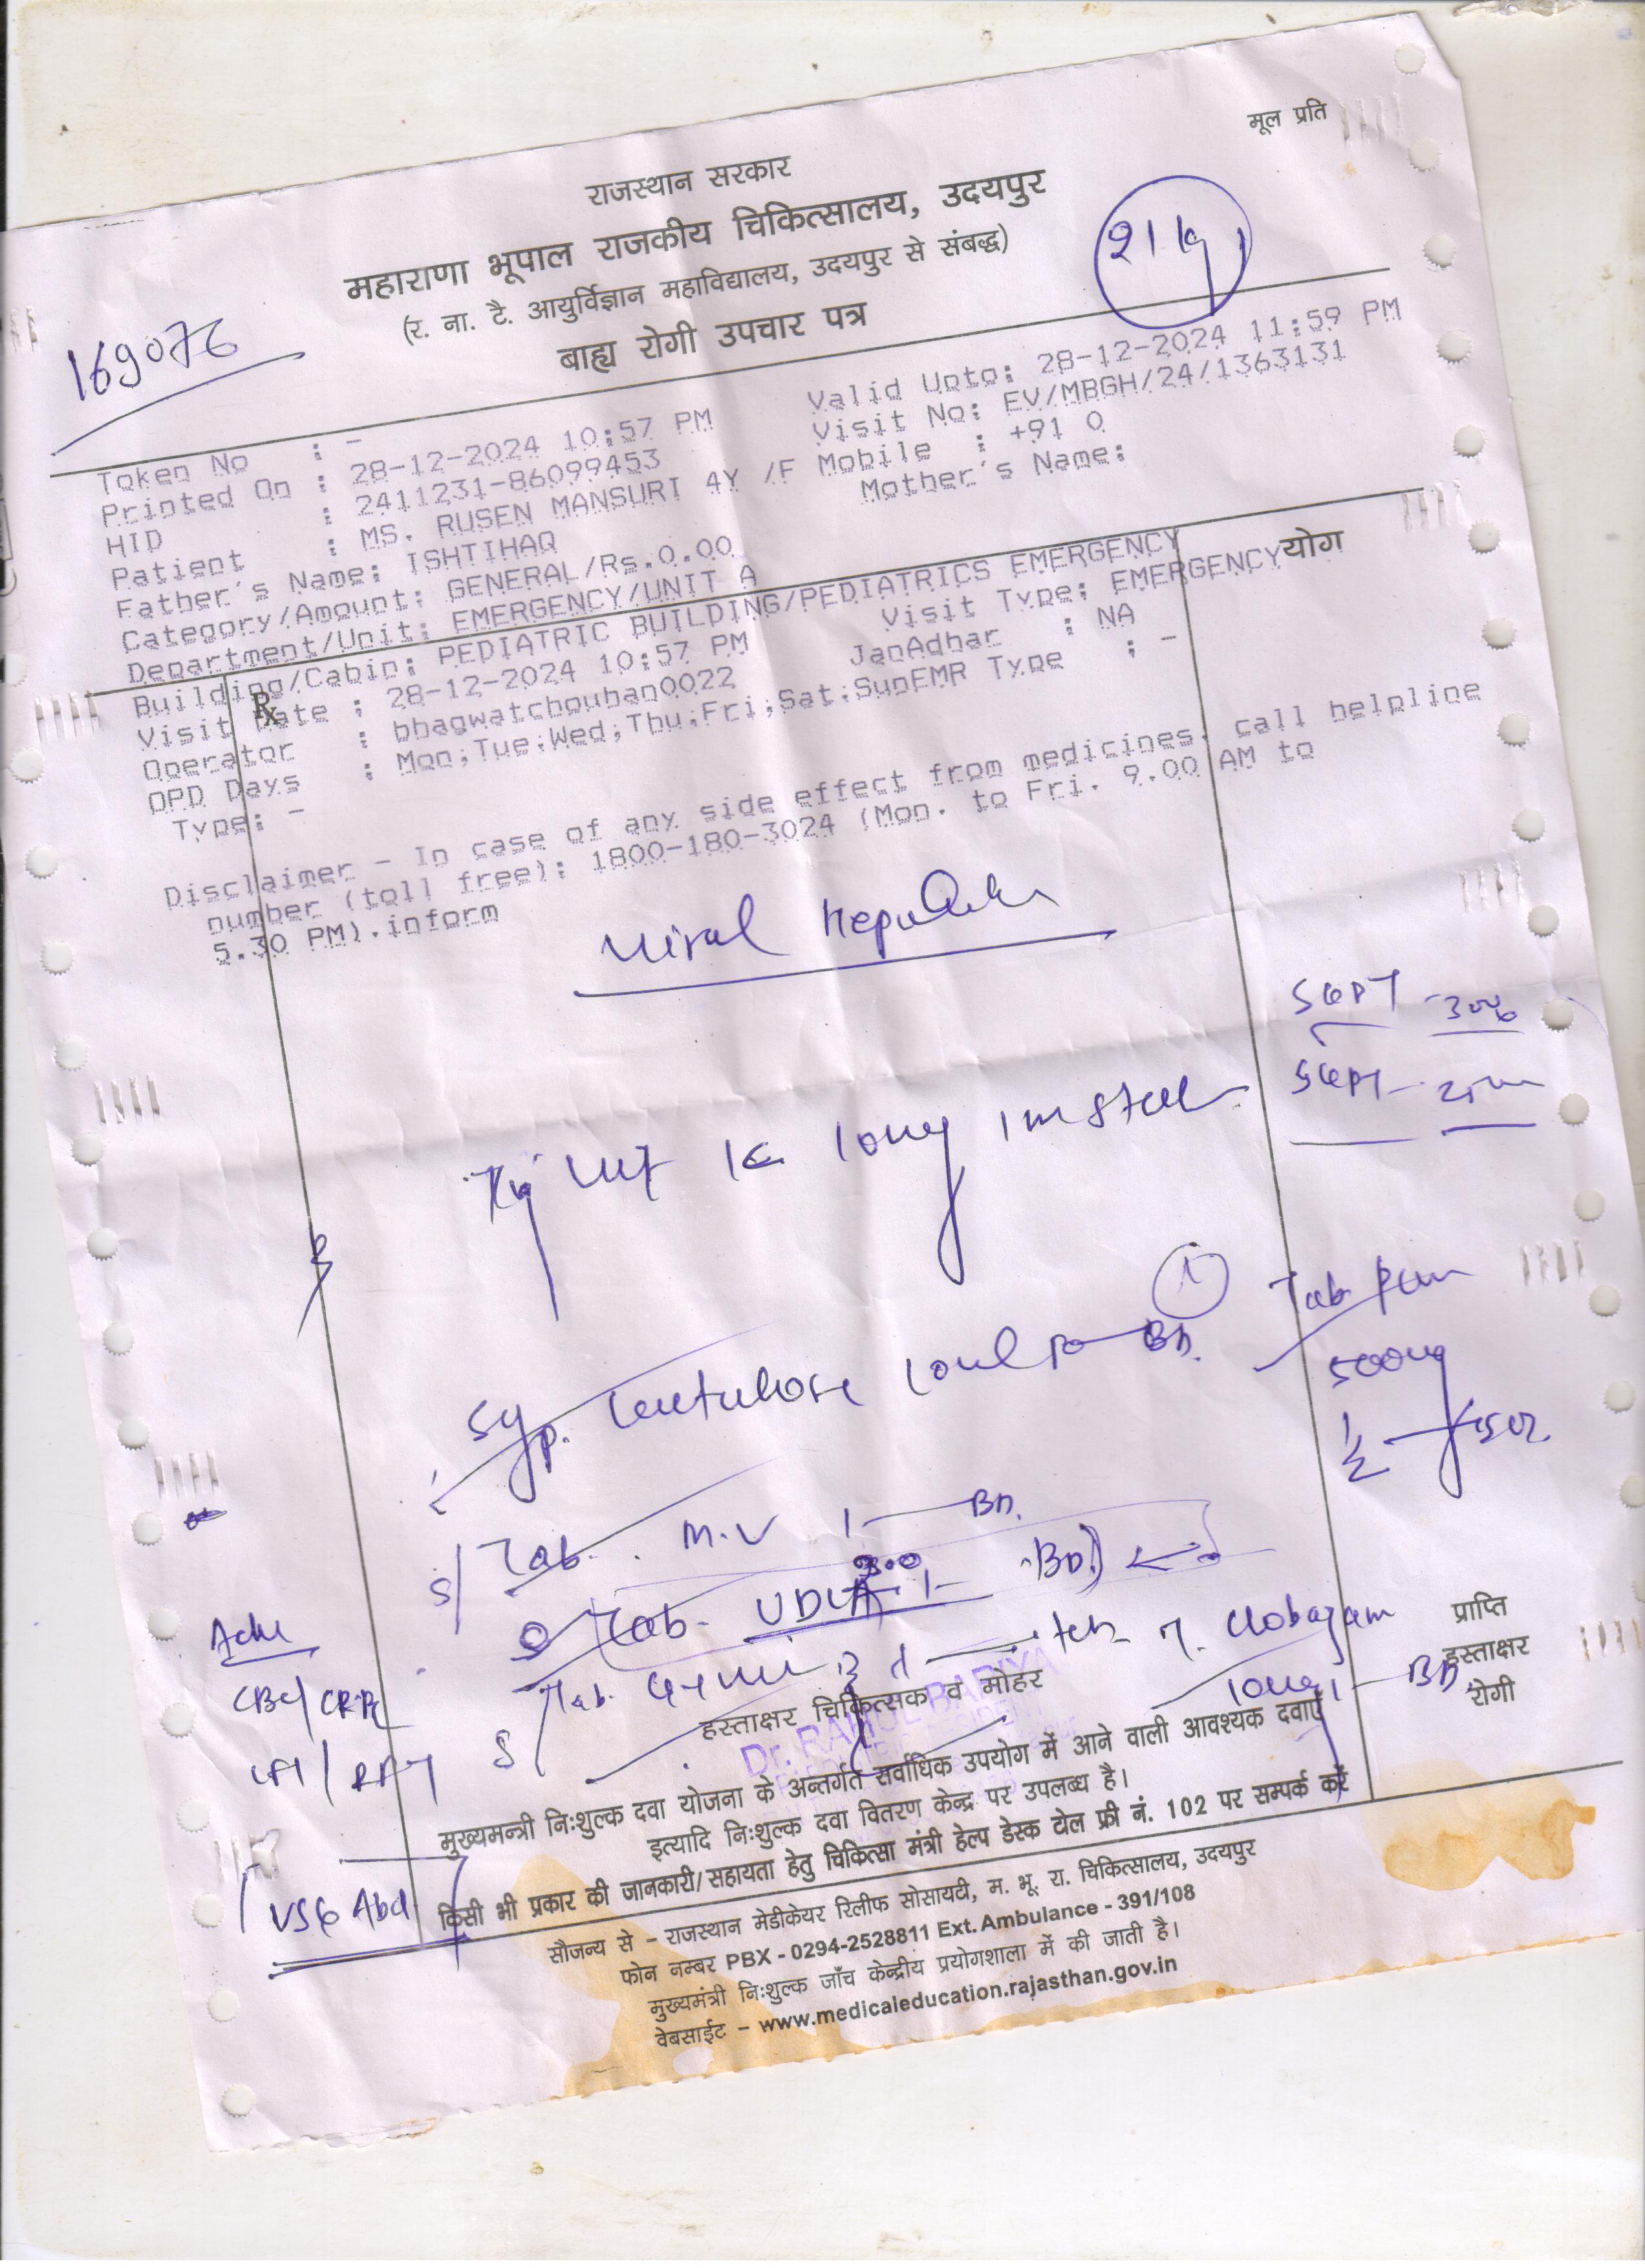 मूल प्रति
राजस्थान सरकार
महाराणा भूपाल राजकीय चिकित्सालय, उदयपुर
(र. ना. टै. आयुर्विज्ञान महाविद्यालय, उदयपुर से संबद्ध)
बाह्य रोगी उपचार पत्र
21 kg
169076
Token No : -
Valid Upto: 28-12-2024 11:59 PM
Printed On : 28-12-2024 10:57 PM
Visit No: EV/MBGH/24/1363131
HID : 2411231-86099453
Mobile : +91 0
Patient : MS. RUSEN MANSURI 4Y /F
Mother's Name:
Father's Name: ISHTIHAQ
Category/Amount: GENERAL/Rs.0.00
Department/Unit: EMERGENCY/UNIT A
Building/Cabin: PEDIATRIC BUILDING/PEDIATRICS EMERGENCY
योग
Visit Date : 28-12-2024 10:57 PM
Visit Type: EMERGENCY
Rx
Operator : bhagwatchouhan0022
JanAdhar : NA
OPD Days : Mon;Tue;Wed;Thu;Fri;Sat;Sun
EMR Type : -
Type: -
Disclaimer - In case of any side effect from medicines, call helpline
number (toll free): 1800-180-3024 (Mon. to Fri. 9.00 AM to
5.30 PM).inform
Viral Hepatitis
SGPT
SGPT
Inj Vit K 10mg Im stat
Syp. Lactulose 10ml BD.
Tab
500mg
1/2
Tab. M.V 1 BD.
Tab. UDCA 300 1 BD
Tab.
T. Clobazam
10mg 1 BD
Adv
CBC/
LFT/RFT
USG Abd
प्राप्ति
हस्ताक्षर
रोगी
हस्ताक्षर चिकित्सक व मोहर
मुख्यमन्त्री निःशुल्क दवा योजना के अन्तर्गत सर्वाधिक उपयोग में आने वाली आवश्यक दवाएँ
इत्यादि निःशुल्क दवा वितरण केन्द्र पर उपलब्ध है।
किसी भी प्रकार की जानकारी/सहायता हेतु चिकित्सा मंत्री हेल्प डेस्क टोल फ्री नं. 102 पर सम्पर्क करें
सौजन्य से - राजस्थान मेडीकेयर रिलीफ सोसायटी, म. भू. रा. चिकित्सालय, उदयपुर
फोन नम्बर PBX - 0294-2528811 Ext. Ambulance - 391/108
मुख्यमंत्री निःशुल्क जाँच केन्द्रीय प्रयोगशाला में की जाती है।
वेबसाईट - www.medicaleducation.rajasthan.gov.in